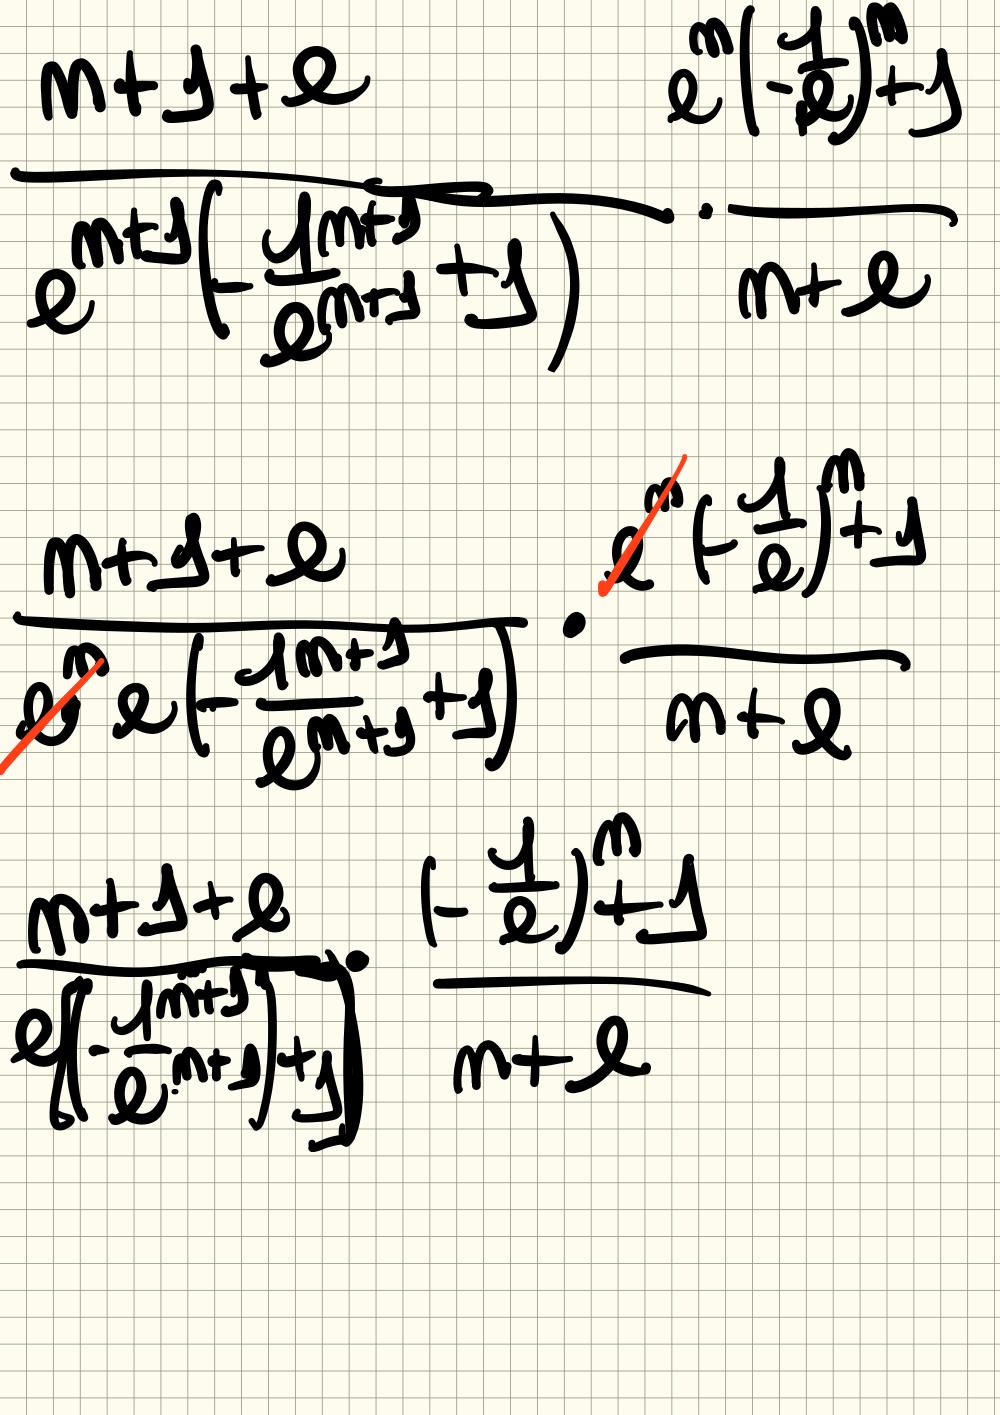 \frac{n+1+e}{e^{n+1}\left(-\frac{1^{n+1}}{e^{n+1}}+1\right)} \cdot \frac{e^{n}\left(-\frac{1}{e}\right)^{n}+1}{n+e}
\frac{n+1+e}{e^{n} e\left(-\frac{1^{n+1}}{e^{n+1}}+1\right)} \cdot \frac{e^{n}\left(-\frac{1}{e}\right)^{n}+1}{n+e}
\frac{n+1+e}{e\left[\left(-\frac{1^{n+1}}{e^{n+1}}\right)+1\right]} \cdot \frac{\left(-\frac{1}{e}\right)^{n}+1}{n+e}